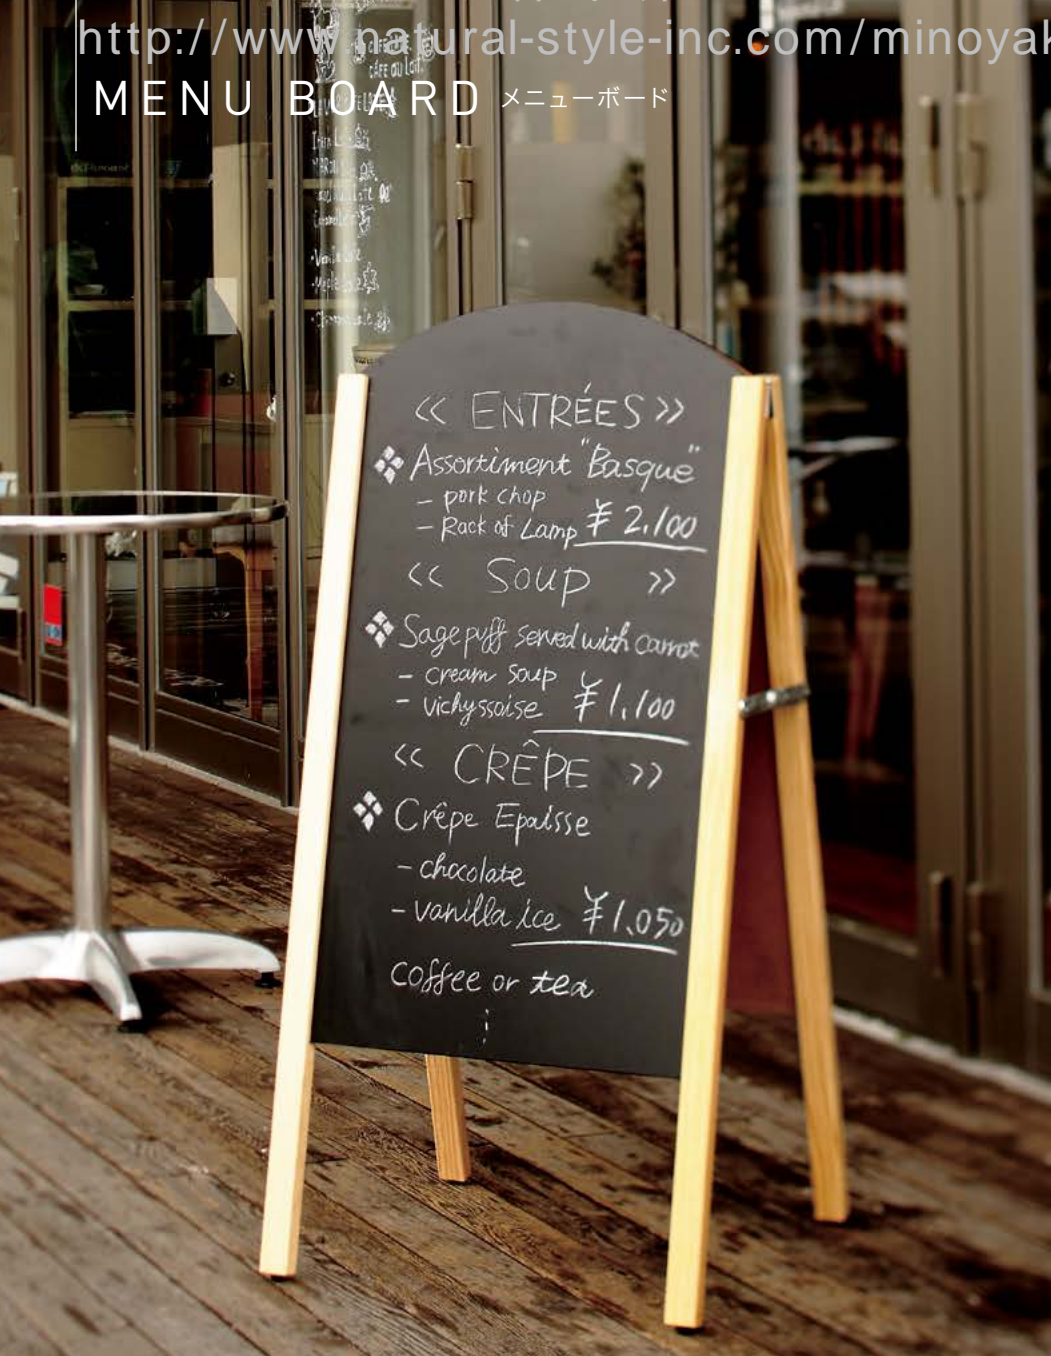 http://www.natural-style-inc.com/minoyak
MENU BOARD メニューボード
CAFE AU LAIT
« ENTRÉES »
❖ Assortiment "Basque"
- pork chop
- Rack of Lamp ¥2,100
« Soup »
❖ Sage puff served with carrot
- cream soup
- vichyssoise ¥1,100
« CRÊPE »
❖ Crêpe Epaisse
- chocolate
- vanilla ice ¥1,050
coffee or tea